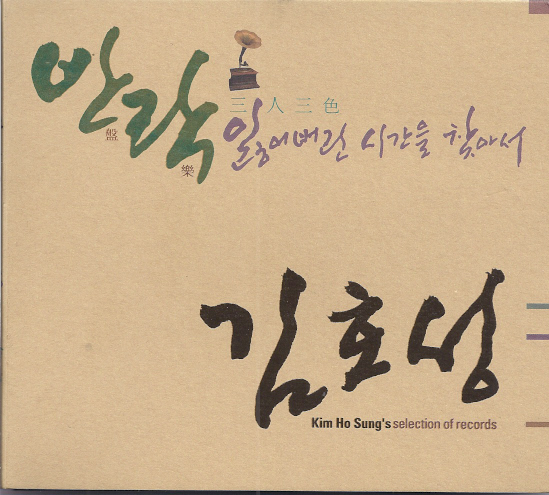 반락
盤
樂
三人三色
잃어버린 시간을 찾아서
김호성
Kim Ho Sung's selection of records